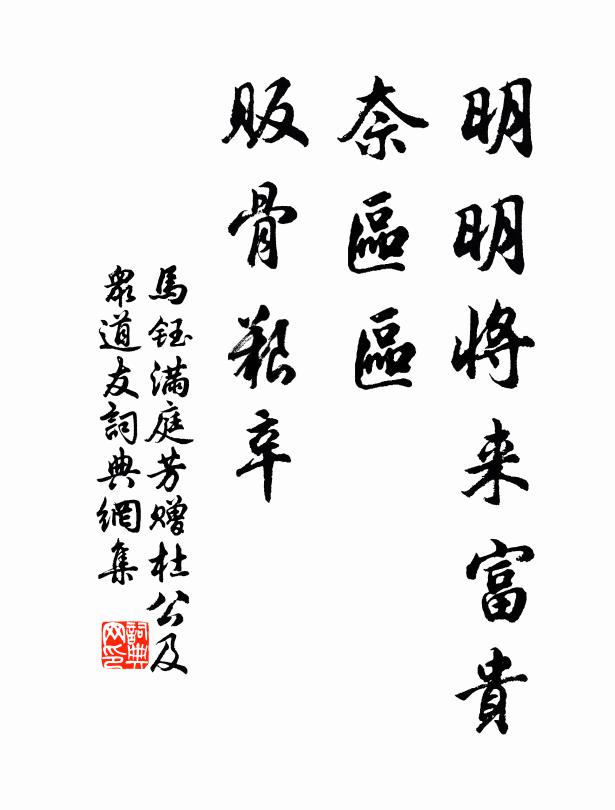 明明將来富貴
奈區區
販骨艱辛
馬鈺滿庭芳贈杜公及
眾道友詞典網集
詞典
网印